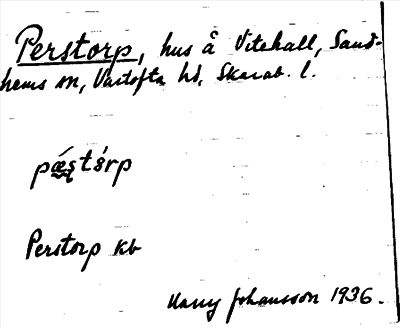 Perstorp, hus å Vitehall, Sand-
hems sn, Vartofta hd, Skarab. l.
pǽʂtɵ́rp
Perstorp kb
Harry Johansson 1936.